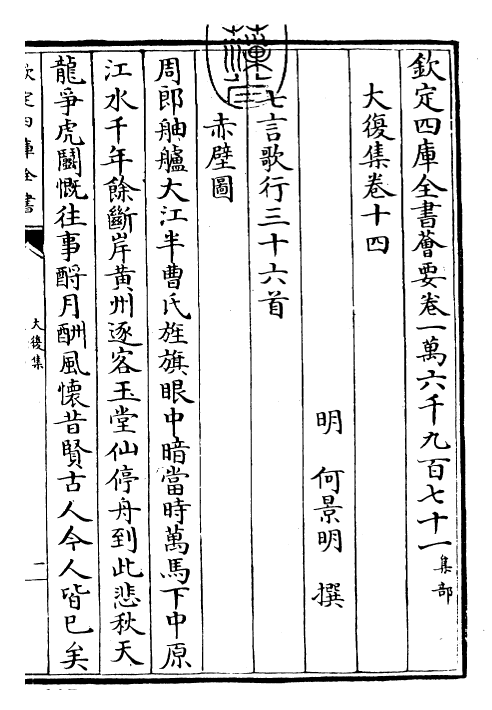 欽定四庫全書薈要卷一萬六千九百七十一集部
大復集卷十四
明 何景明 撰
七言歌行三十六首
赤壁圖
周郎舳艫大江半曹氏旌旗眼中暗當時萬馬下中原
江水千年餘斷岸黃州逐客玉堂仙停舟到此悲秋天
龍爭虎鬭慨往事酹月酬風懷昔賢古人今人皆已矣
欽定四庫全書
大復集
二